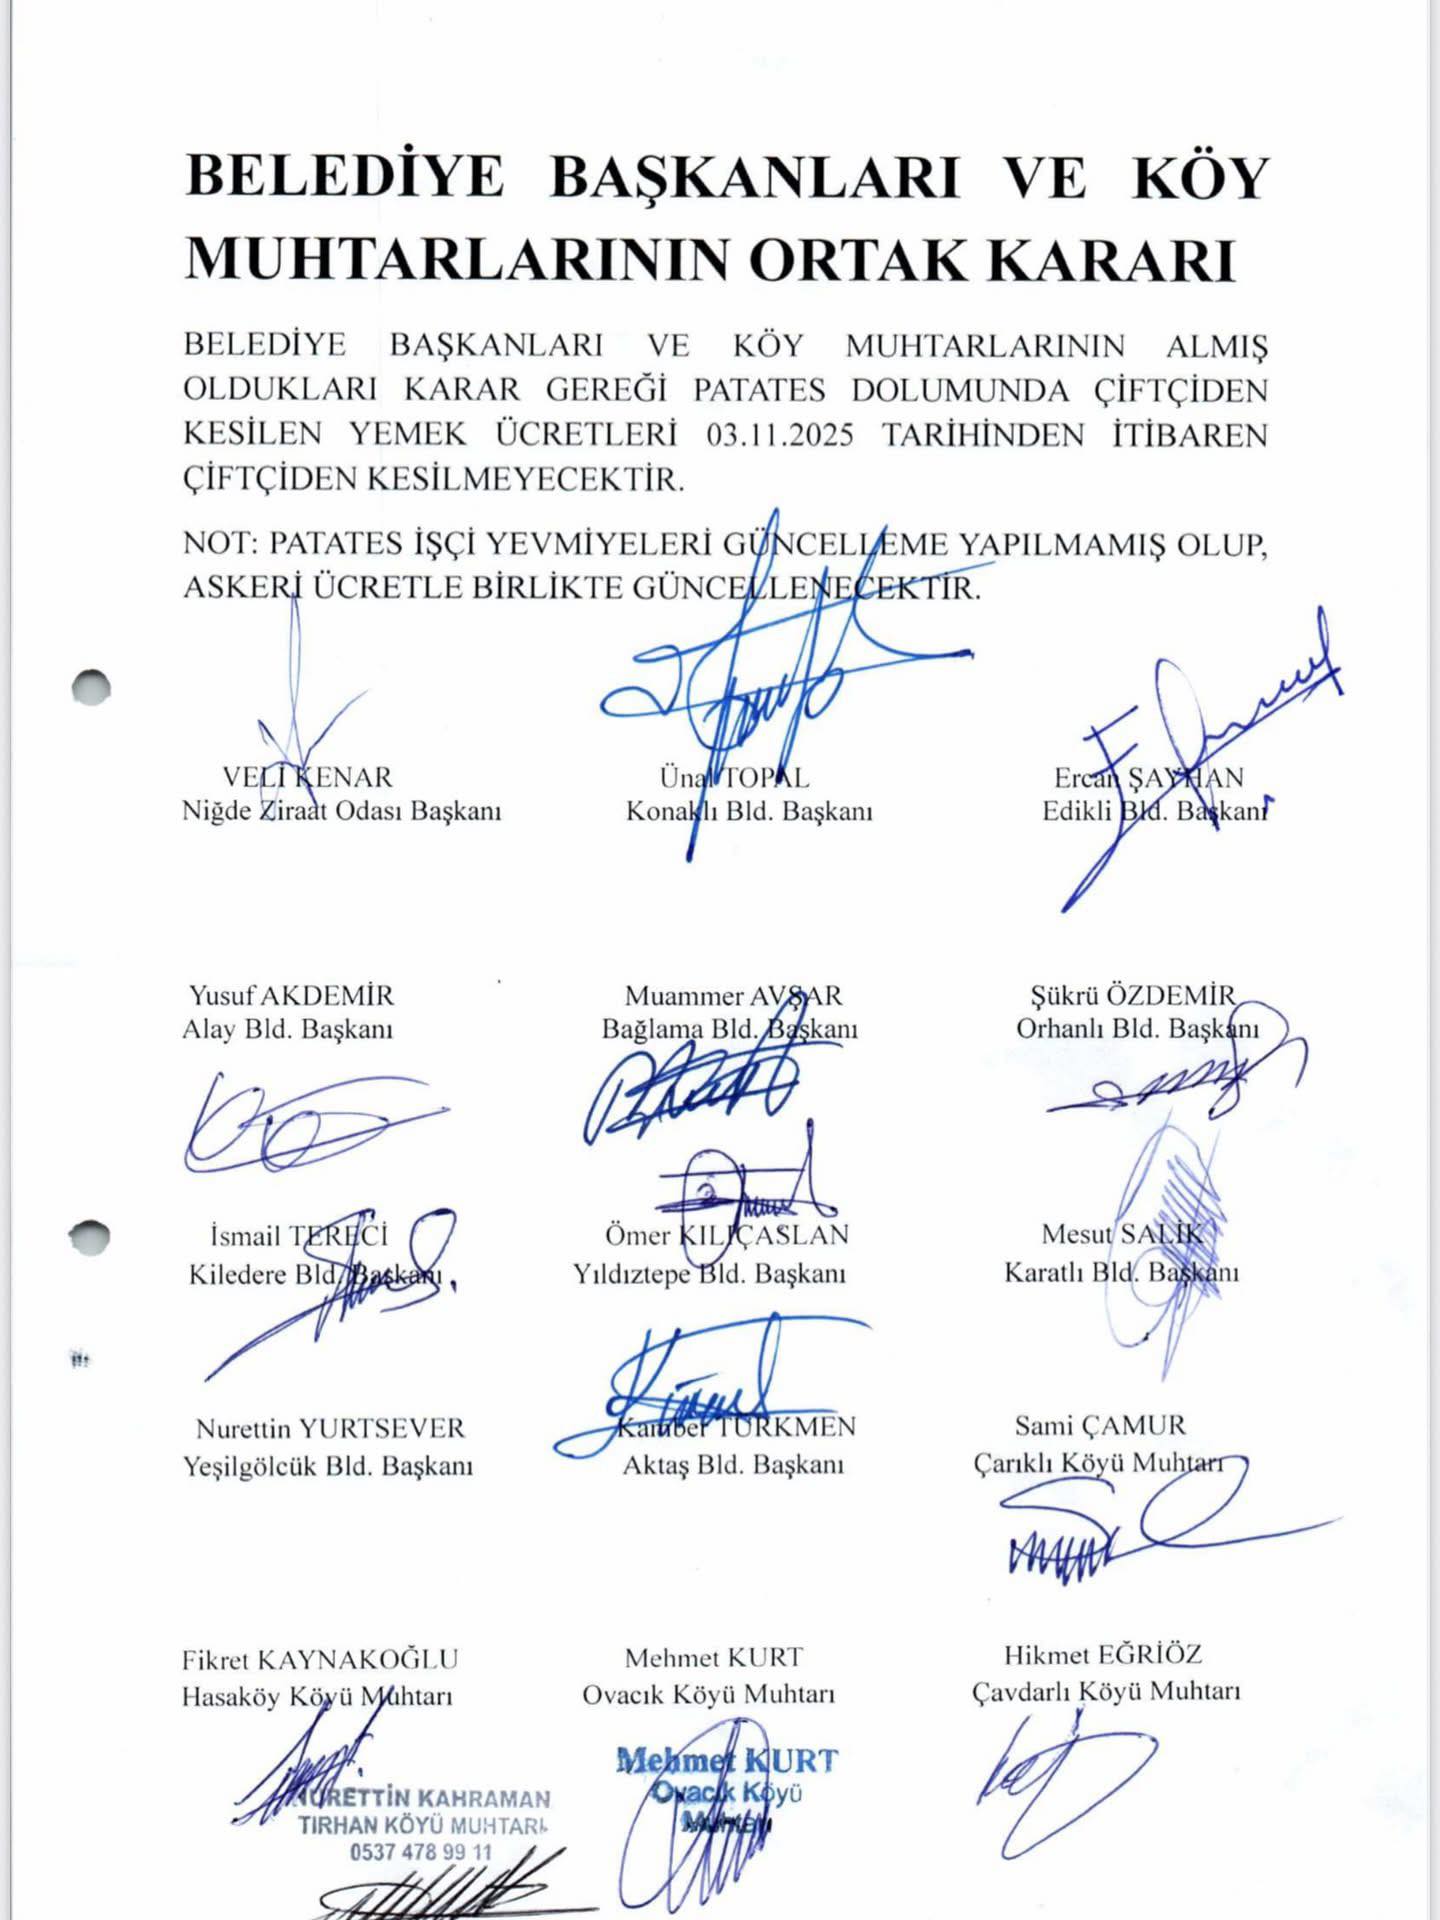 BELEDİYE BAŞKANLARI VE KÖY
MUHTARLARININ ORTAK KARARI
BELEDİYE BAŞKANLARI VE KÖY MUHTARLARININ ALMIŞ
OLDUKLARI KARAR GEREĞİ PATATES DOLUMUNDA ÇİFTÇİDEN
KESİLEN YEMEK ÜCRETLERİ 03.11.2025 TARİHİNDEN İTİBAREN
ÇİFTÇİDEN KESİLMEYECEKTİR.
NOT: PATATES İŞÇİ YEVMİYELERİ GÜNCELLEME YAPILMAMIŞ OLUP,
ASKERİ ÜCRETLE BİRLİKTE GÜNCELLENECEKTİR.
VELİ KENAR
Niğde Ziraat Odası Başkanı
Ünal TOPAL
Konaklı Bld. Başkanı
Ercan ŞAYHAN
Edikli Bld. Başkanı
Yusuf AKDEMİR
Alay Bld. Başkanı
Muammer AVŞAR
Bağlama Bld. Başkanı
Şükrü ÖZDEMİR
Orhanlı Bld. Başkanı
İsmail TERECİ
Kiledere Bld. Başkanı
Ömer KILIÇASLAN
Yıldıztepe Bld. Başkanı
Mesut SALİK
Karatlı Bld. Başkanı
Nurettin YURTSEVER
Yeşilgölcük Bld. Başkanı
Kamber TÜRKMEN
Aktaş Bld. Başkanı
Sami ÇAMUR
Çarıklı Köyü Muhtarı
Fikret KAYNAKOĞLU
Hasaköy Köyü Muhtarı
Mehmet KURT
Ovacık Köyü Muhtarı
Hikmet EĞRİÖZ
Çavdarlı Köyü Muhtarı
Mehmet KURT
Ovacık Köyü
Muhtarı
NURETTİN KAHRAMAN
TIRHAN KÖYÜ MUHTARI
0537 478 99 11